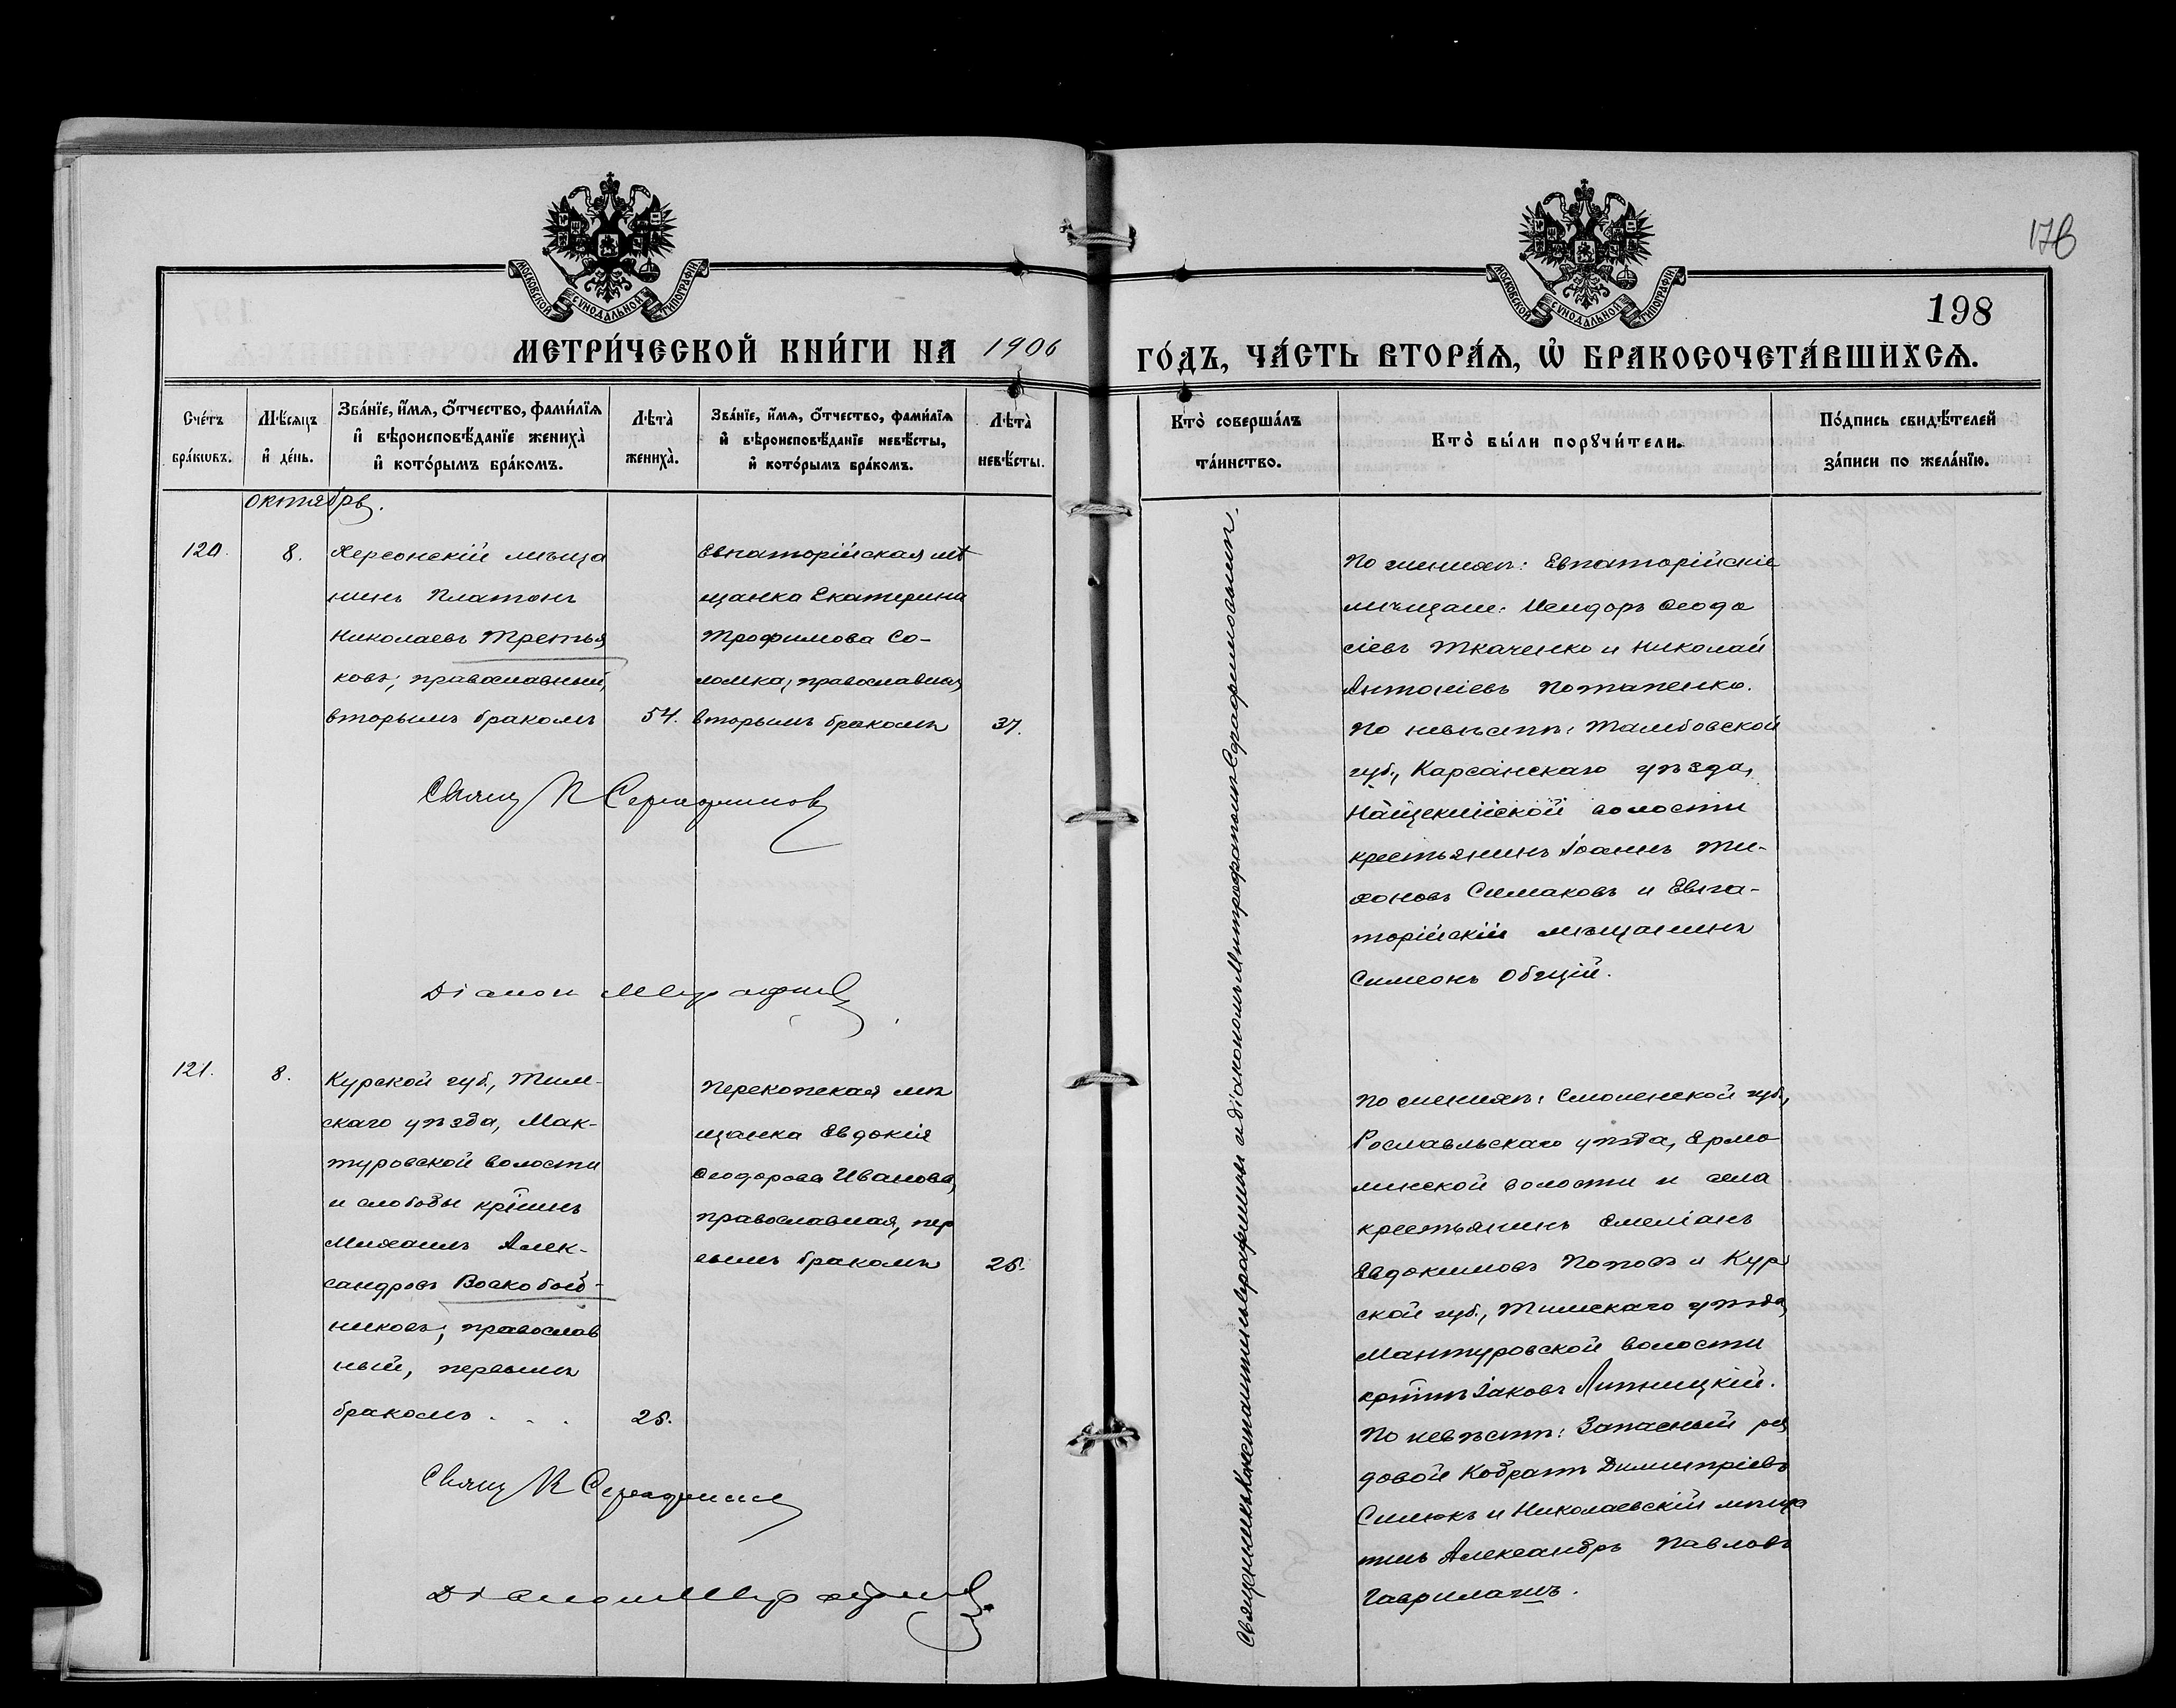 178
198
МОСКОВСКОЙ СѴНОДАЛЬНОЙ ТИПОГРАФІИ
МОСКОВСКОЙ СѴНОДАЛЬНОЙ ТИПОГРАФІИ
МЕТРИ́ЧЕСКОЙ КНИ́ГИ НА 1906
ГО́ДЪ, ЧА́СТЬ ВТОРА́Я, Ѽ БРАКОСОЧЕТА́ВШИХСЯ.
Сче́тъ бра́кѡвъ.
Мѣ́сяцъ и҆ де́нь.
Зва́нїе, и҆́мя, ѻ҆́тчество, фами́лїя и҆ вѣроисповѣ́данїе жениха̀ и҆ кото́рымъ бра́комъ.
Лѣта̀ жениха̀.
Зва́нїе, и҆́мя, ѻ҆́тчество, фами́лїя и҆ вѣроисповѣ́данїе невѣ́сты, и҆ кото́рымъ бра́комъ.
Лѣта̀ невѣ́сты.
Кто̀ соверша́лъ та́инство.
Кто̀ бы́ли порꙋчи́тели.
По́дпись свидѣ́телей за́писи по жела́нїю.
октябрь.
120.
8.
Херсонскій мѣща
нинъ Платонъ
Николаевъ Третья
ковъ; православный,
вторымъ бракомъ
54.
Евпаторійская мѣ
щанка Екатерина
Трофимова Со-
ломка; православная,
вторымъ бракомъ
37.
Свящ Н Серафимовъ
Діакон М Серафимов
Священникъ Константинъ Серафимовъ и діакономъ Митрофаномъ Серафимовымъ.
По женихѣ: Евпаторійскіе
мѣщане: Исидоръ Ѳеодо
сіевъ Ткаченко и Николай
Антоніевъ Потапенко.
По невѣстѣ: Тамбовской
губ., Карсанскаго уѣзда,
Нащекинской волости
крестьянинъ Іоаннъ Ти-
хоновъ Симаковъ и Евпа-
торійскій мѣщанинъ
Симеонъ Общій.
121.
8.
Курской губ., Тим-
скаго уѣзда, Ман-
туровской волости
и слободы кр͠нинъ
Михаилъ Алек-
сандровъ Воскобой-
никовъ; православ
ный, первымъ
бракомъ . . .
25.
Перекопская мѣ
щанка Евдокія
Ѳеодорова Иванова,
православная, пер
вымъ бракомъ
25.
Свящ К Серафимов
Діакон М Серафимов
По женихѣ: Смоленской губ.,
Рославльскаго уѣзда, Ермо
линской волости и села
крестьянинъ Емеліанъ
Евдокимовъ Поповъ и Кур
ской губ., Тимскаго уѣзда,
Мантуровской волости
кр͠нинъ Іаковъ Липницкій.
По невѣстѣ: Запасный ря
довой Кодратъ Димитріевъ
Симокъ и Николаевскій мѣща
нинъ Александръ Павловъ
Гаврилашъ.